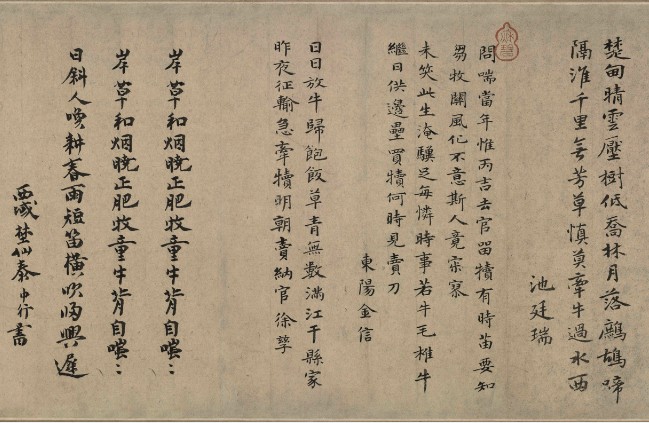 楚甸晴雲壓樹低喬林月落鷓鴣啼
隔淮千里無芳草慎莫牽牛過水西
池廷瑞
問喘當年惟丙吉去官留犢有時苗要知
芻牧關風化不意斯人竟寂寥
未笑此生淹驥足每憐時事若牛毛椎牛
繼日供邊壘買犢何時見賣刀
東陽金信
日日放牛歸飽飯草青無數滿江干縣家
昨夜征輸急牽犢明朝賣納官徐孳
岸草和烟晚正肥牧童牛背自嗤〻
岸草和烟晚正肥牧童牛背自嗤〻
日斜人喚耕春雨短笛橫吹歸興遲
西域埜仙泰中行書